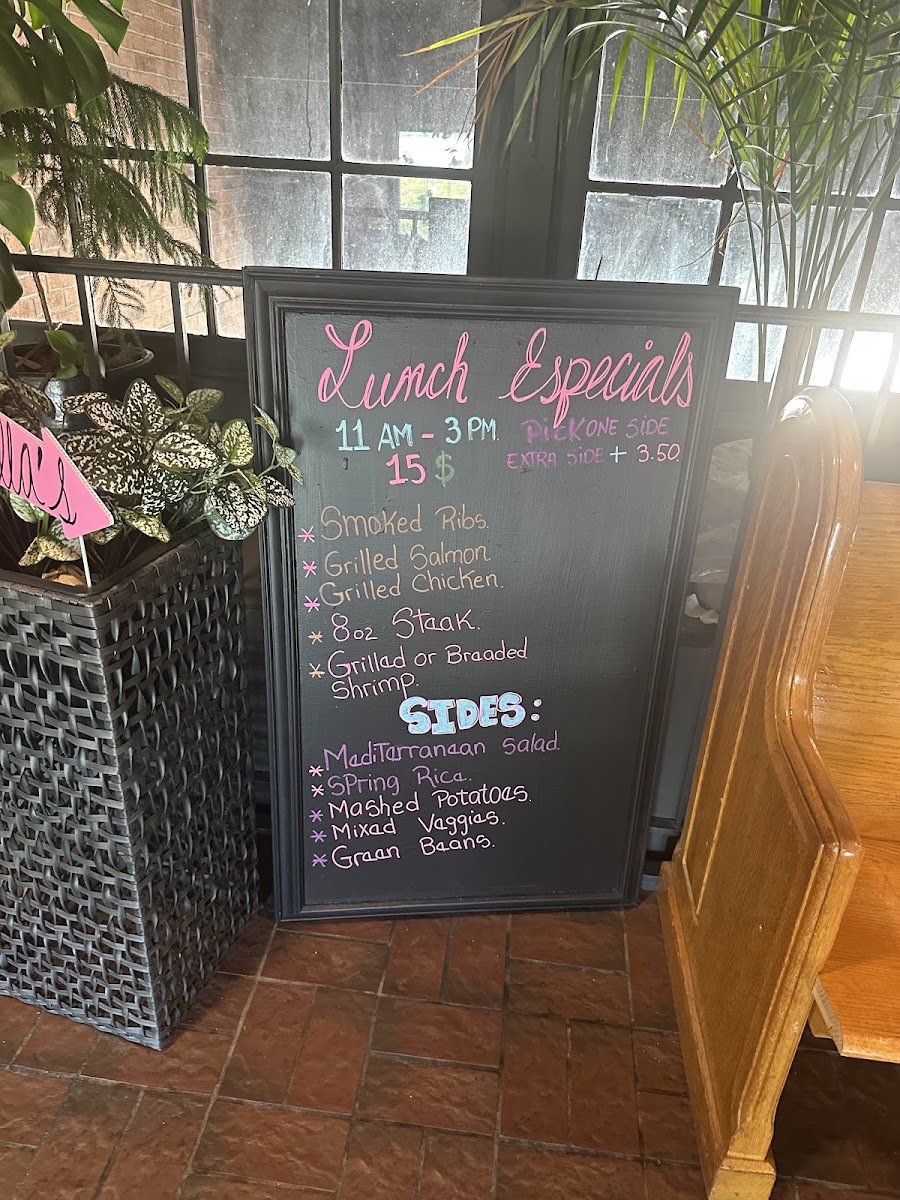 lla's
Lunch Especials
11 AM - 3 PM. Pick one side
15 $ Extra side + 3.50.
* Smoked Ribs.
* Grilled Salmon
* Grilled Chicken.
* 8oz Steak.
* Grilled or Breaded
Shrimp.
SIDES:
* MediTerranean Salad.
* SPring Rice.
* Mashed Potatoes.
* Mixed Veggies.
* Green Beans.